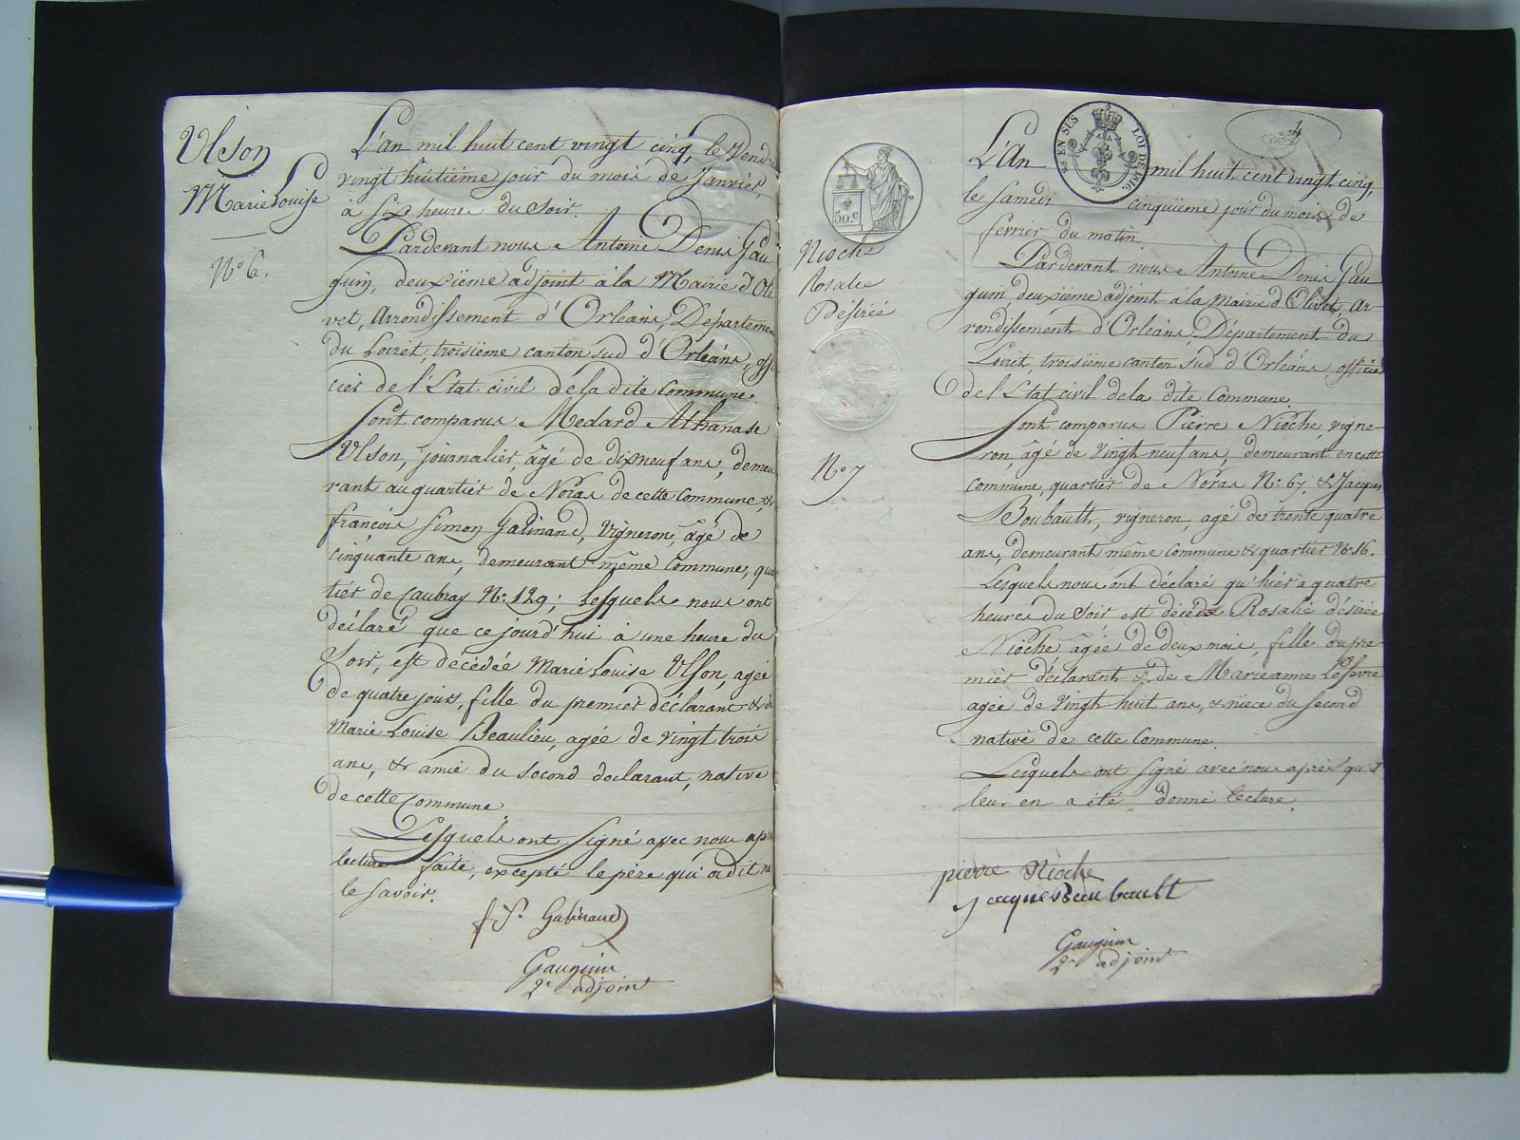 Ulson
Marie Louise
N° 6.
L'an mil huit cent vingt cinq, le Vend
vingt huitième jour du mois de Janvier,
à six heures du Soir.
Pardevant nous Antoine Denis Gau
guin, deuxième adjoint à la Mairie d'Oli
vet, Arrondissement d'Orléans, Départemen
du Loiret, troisième canton sud d'Orléans, offi
cier de l'Etat civil de la dite Commune.
Sont comparus Medard Athanase
Ulson, journalier, âgé de dix neuf ans, demeu
rant au quartier de Noras de cette Commune, &
françois Simon Galinand, Vigneron, âgé de
cinquante ans, demeurant même Commune, quar
tier de Caubray N° 129; Lesquels nous ont
déclaré que ce jourd'hui à une heure du
Soir, est décédée Marie Louise Ulson, agée
de quatre jours, fille du premier déclarant & de
Marie Louise Beaulieu, agée de vingt trois
ans, & amie du second déclarant, native
de cette Commune
Lesquels ont signé avec nous ap
lecture faite, excepté le père qui a dit ne
le savoir.
f. S. Galinand
Gauguin
2e adjoint
EN SUS
LOI DE 1816
4
50 c
Nioche
Rosalie
Désirée
N° 7
L'An mil huit cent vingt cinq,
le Samedi cinquième jour du mois de
fevrier du matin.
Pardevant nous Antoine Denis Gau
guin, deuxième adjoint à la Mairie d'Olivet, Ar-
rondissement d'Orléans, Département du
Loiret, troisième canton Sud d'Orléans officier
de l'Etat civil de la dite Commune
Sont comparus Pierre Nioche, vigne-
ron, âgé de Vingt neuf ans, demeurant en cette
commune, quartier de Noras N° 67. & Jacques
Boubault, vigneron, agé de trente quatre
ans, demeurant même Commune & quartier N° 16.
Lesquels nous ont déclaré qu'hier à quatre
heures du Soir est décédée Rosalie désirée
Nioche agée de deux mois, fille du pre
mier déclarant & de Marie anne Lefevre
agée de Vingt huit ans, & nièce du second
native de cette Commune.
Lesquels ont signé avec nous après qu'il
leur en a été donné lecture.
pierre Nioche
jacques Boubault
Gauguin
2e adjoint